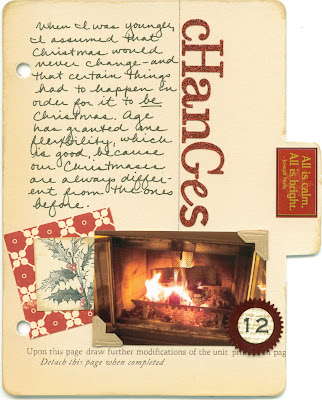 When I was younger,
I assumed that
Christmas would
never change - and
that certain things
had to happen in
order for it to be
Christmas. Age
has granted me
flexibility, which
is good, because
our Christmases
are always differ-
ent from the ones
before.
cHanGes
All is calm,
All is bright.
12
Upon this page draw further modifications of the unit page
Detach this page when completed